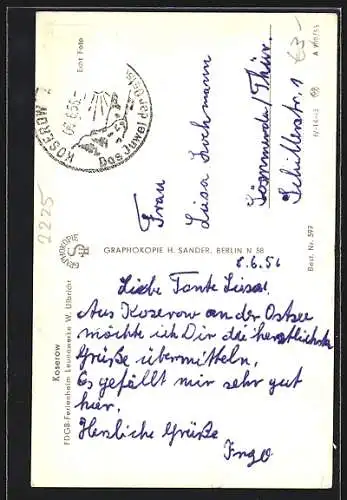 KOSEROW 2
Das Juwel der Ostsee
Echt Foto
63-
Frau
Luisa Lochmann
Sömmerda/Thür.
Schillerstr. 1
2225
GRAPHOKOPIE
GRAPHOKOPIE H. SANDER, BERLIN N 58
Best. Nr. 597
Koserow
FDGB-Ferienheim Leunawerke W. Ulbricht
8.6.56
Liebe Tante Luisa!
Aus Koserow an der Ostsee
möchte ich Dir die herzlichsten
Grüße übermitteln.
Es gefällt mir sehr gut
hier.
Herzliche Grüße
Ingo